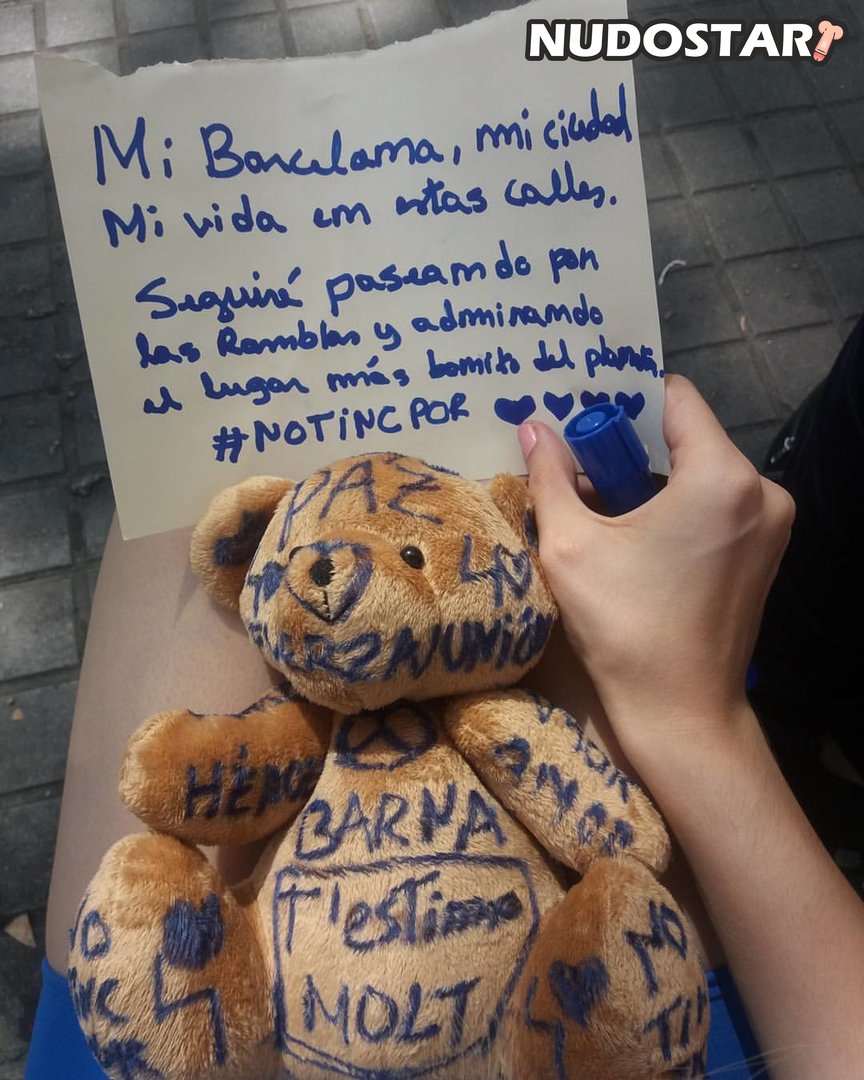 NUDOSTAR
Mi Barcelona, mi ciudad
Mi vida en estas calles.
Seguiré paseando por
las Ramblas y admirando
el lugar más bonito del planeta.
#NOTINCPOR
PAZ
FUERZA UNIÓN
BARNA
AMOR
T'estimo
MOLT
NO
NO